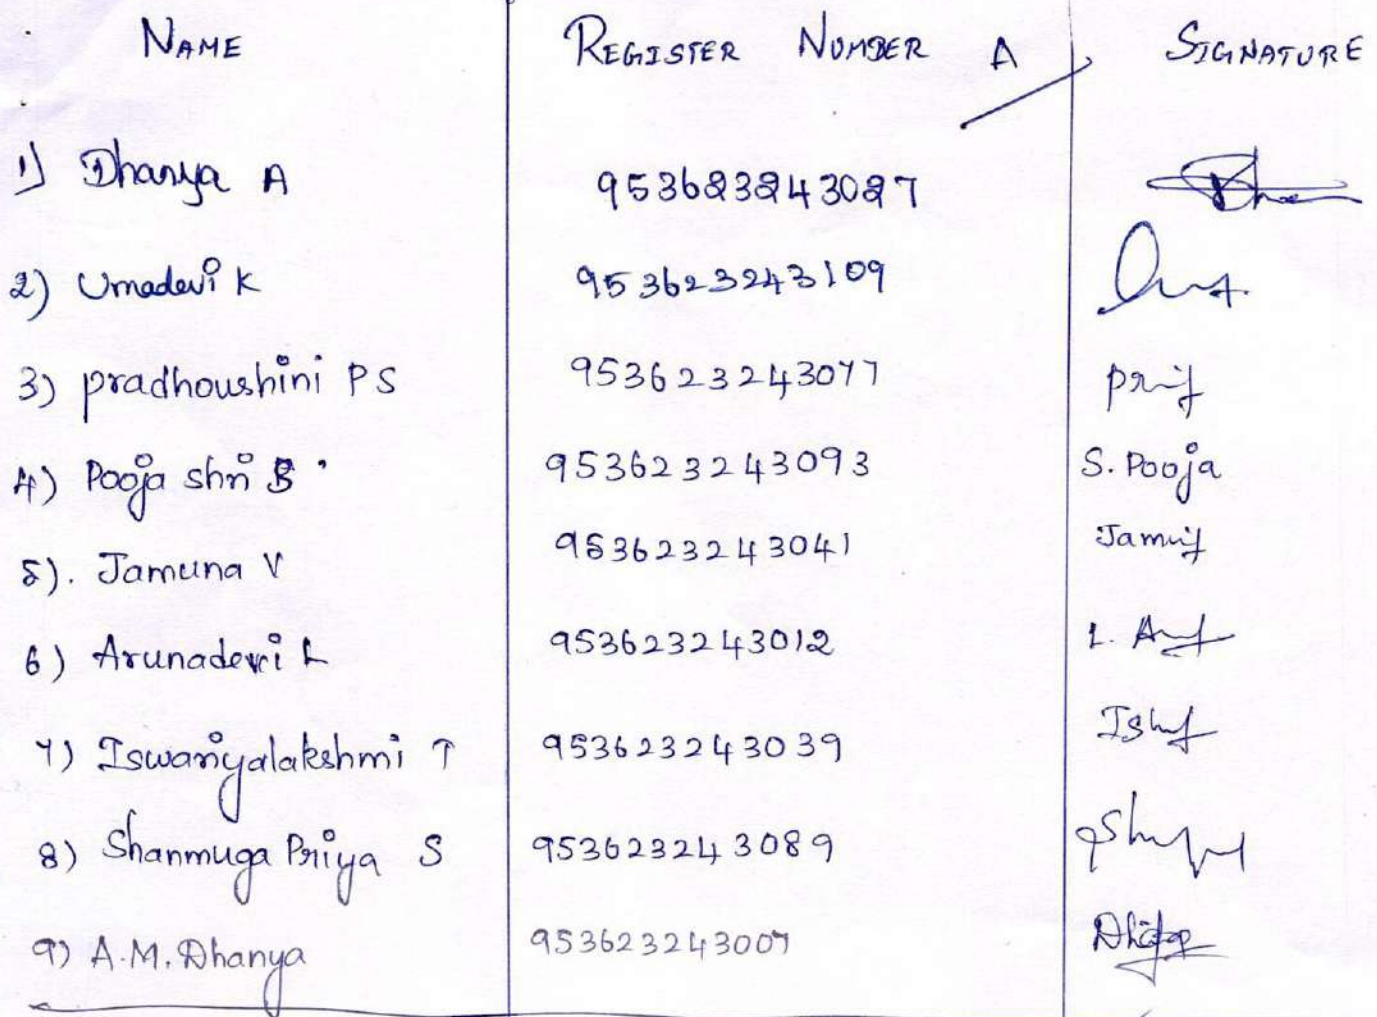 NAME REGISTER NUMBER A SIGNATURE
1) Dhanya A 953623243027
2) Umadevi K 953623243109
3) pradhoushini P S 953623243077
4) Pooja shri S 953623243093 S. Pooja
5). Jamuna V 953623243041
6) Arunadevi L 953623243012
7) Iswariyalakshmi T 953623243039
8) Shanmuga Priya S 953623243089
9) A.M. Dhanya 953623243007